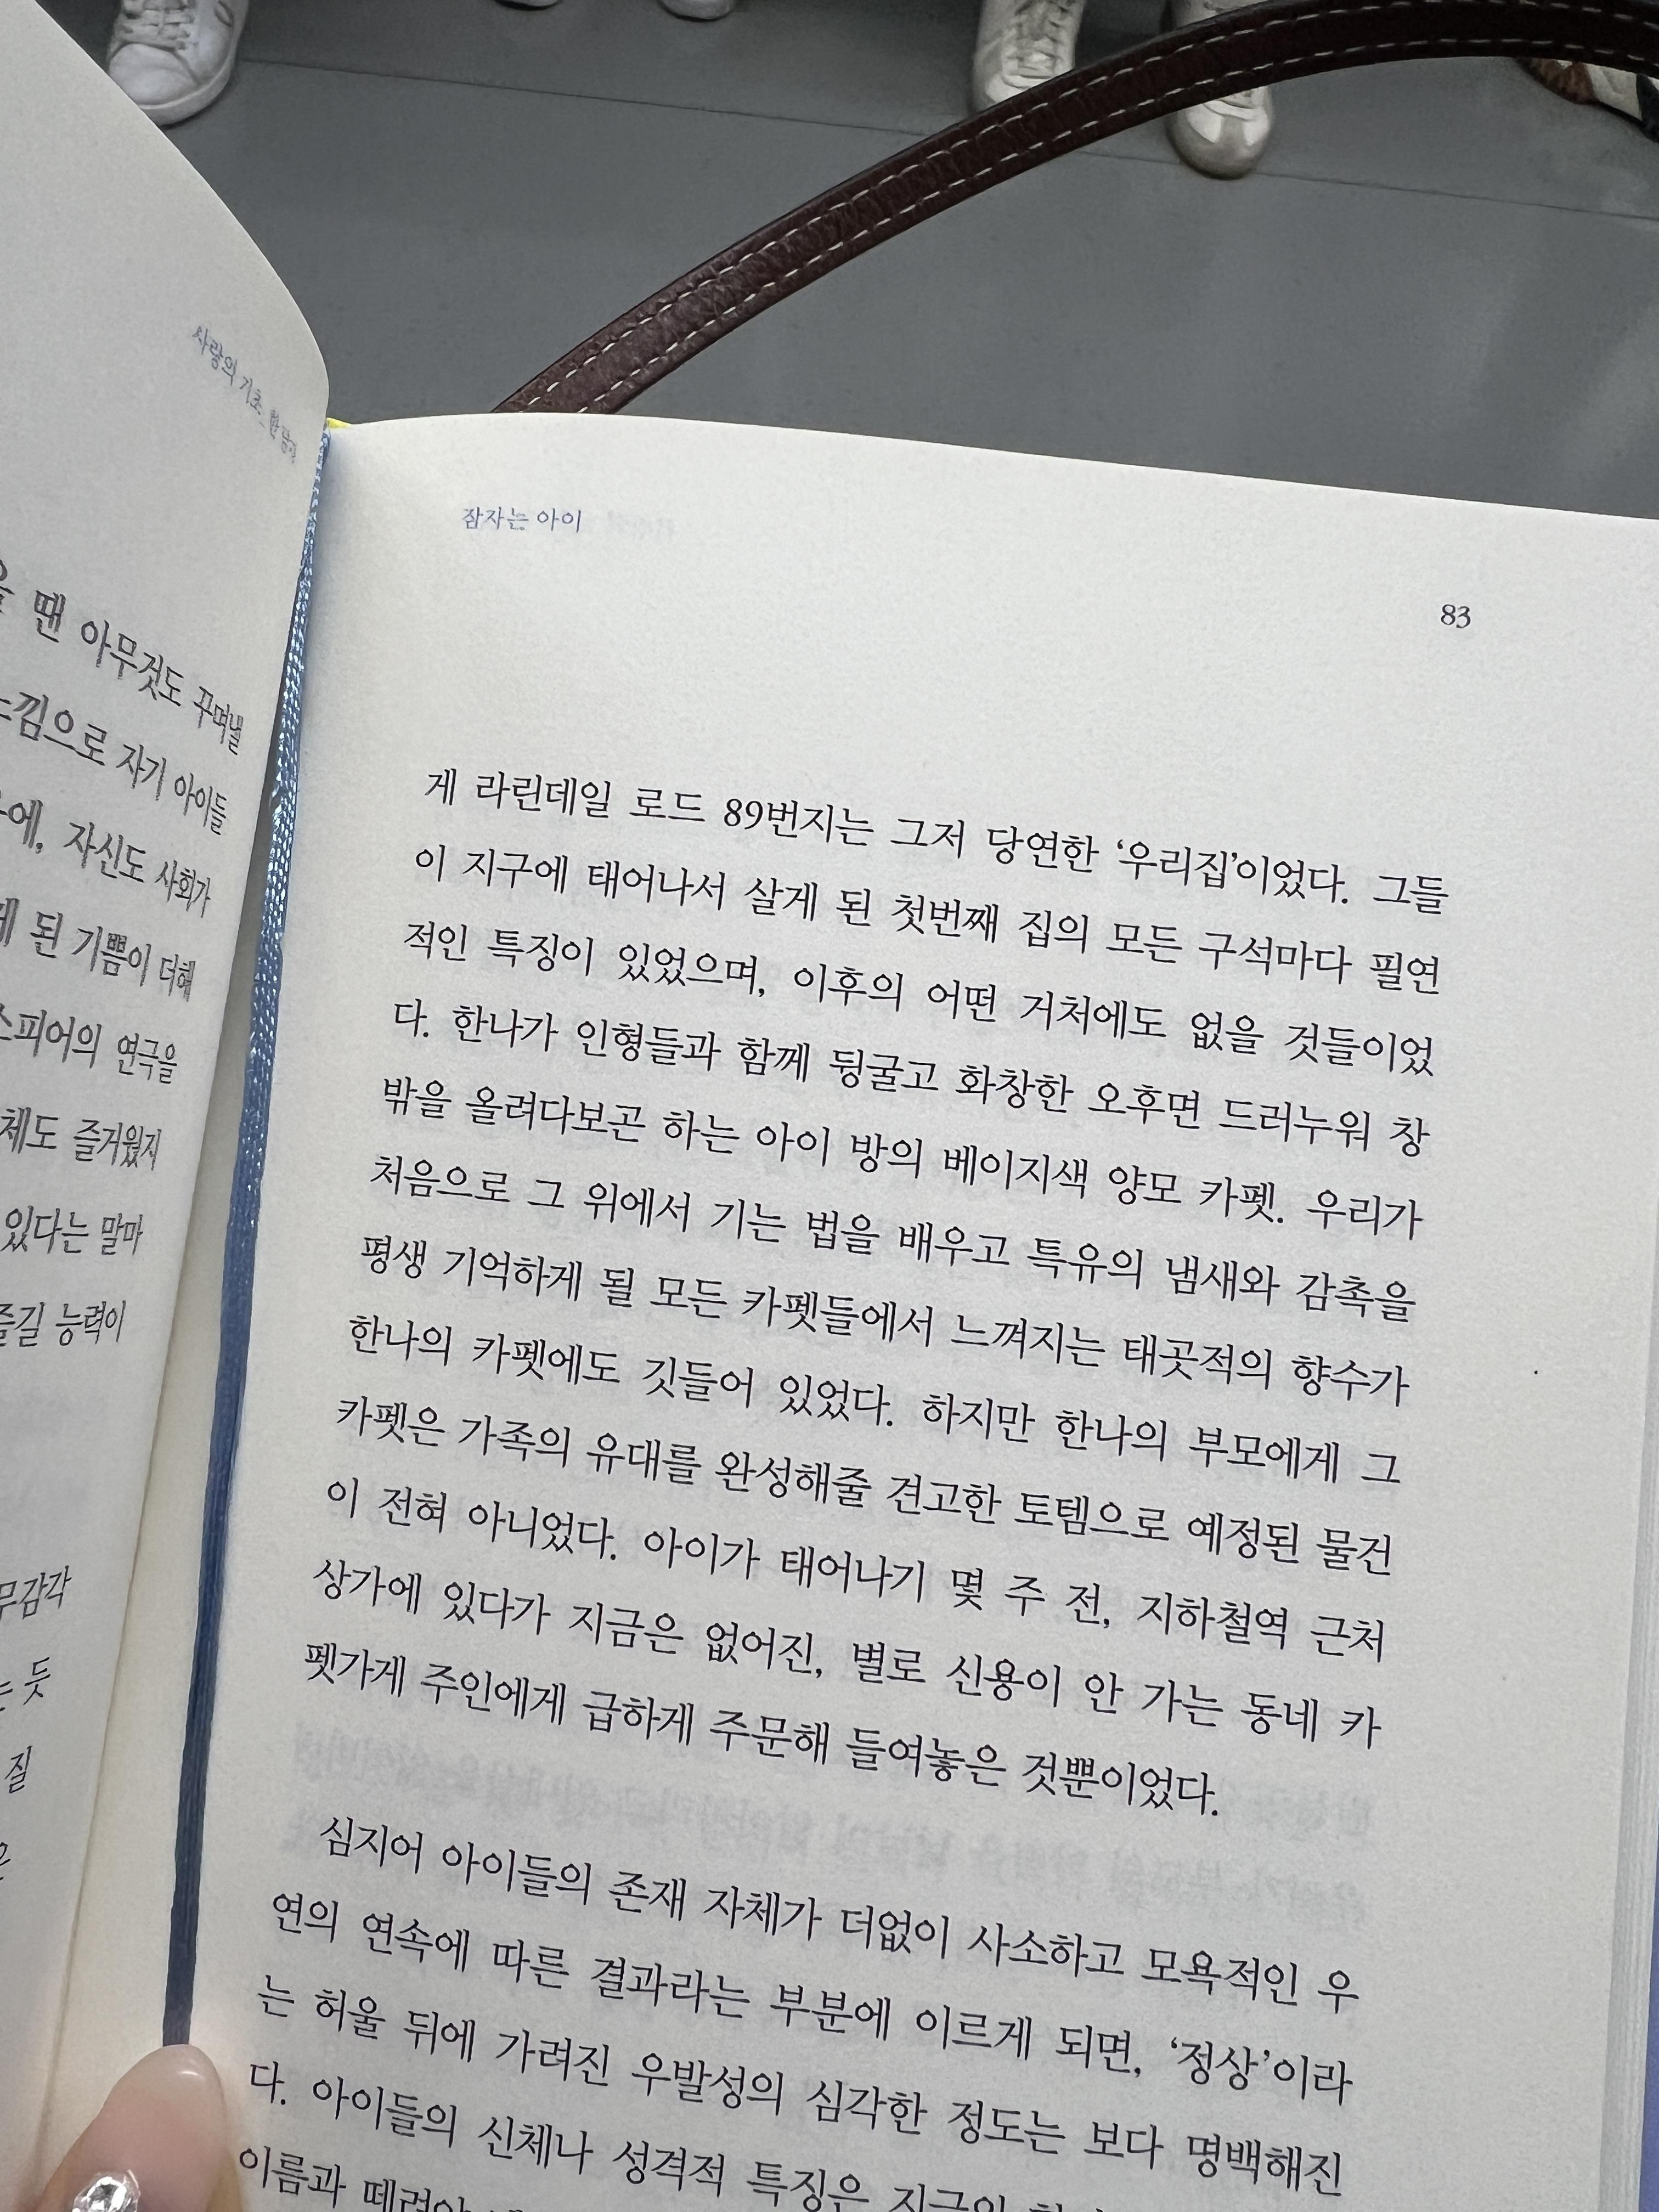 사랑의 기초_한 남자
땐 아무것도 꾸며낼
느낌으로 자기 아이들
자신도 사회가
된 기쁨이 더해
스피어의 연극을
즐거웠지
있다는 말마
즐길 능력이
무감각
듯
잠자는 아이
83
게 라린데일 로드 89번지는 그저 당연한 ‘우리집’이었다. 그들
이 지구에 태어나서 살게 된 첫번째 집의 모든 구석마다 필연
적인 특징이 있었으며, 이후의 어떤 거처에도 없을 것들이었
다. 한나가 인형들과 함께 뒹굴고 화창한 오후면 드러누워 창
밖을 올려다보곤 하는 아이 방의 베이지색 양모 카펫. 우리가
처음으로 그 위에서 기는 법을 배우고 특유의 냄새와 감촉을
평생 기억하게 될 모든 카펫들에서 느껴지는 태곳적의 향수가
한나의 카펫에도 깃들어 있었다. 하지만 한나의 부모에게 그
카펫은 가족의 유대를 완성해줄 견고한 토템으로 예정된 물건
이 전혀 아니었다. 아이가 태어나기 몇 주 전, 지하철역 근처
상가에 있다가 지금은 없어진, 별로 신용이 안 가는 동네 카
펫가게 주인에게 급하게 주문해 들여놓은 것뿐이었다.
심지어 아이들의 존재 자체가 더없이 사소하고 모욕적인 우
연의 연속에 따른 결과라는 부분에 이르게 되면, ‘정상’이라
는 허울 뒤에 가려진 우발성의 심각한 정도는 보다 명백해진
다. 아이들의 신체나 성격적 특징은 지금의
이름과